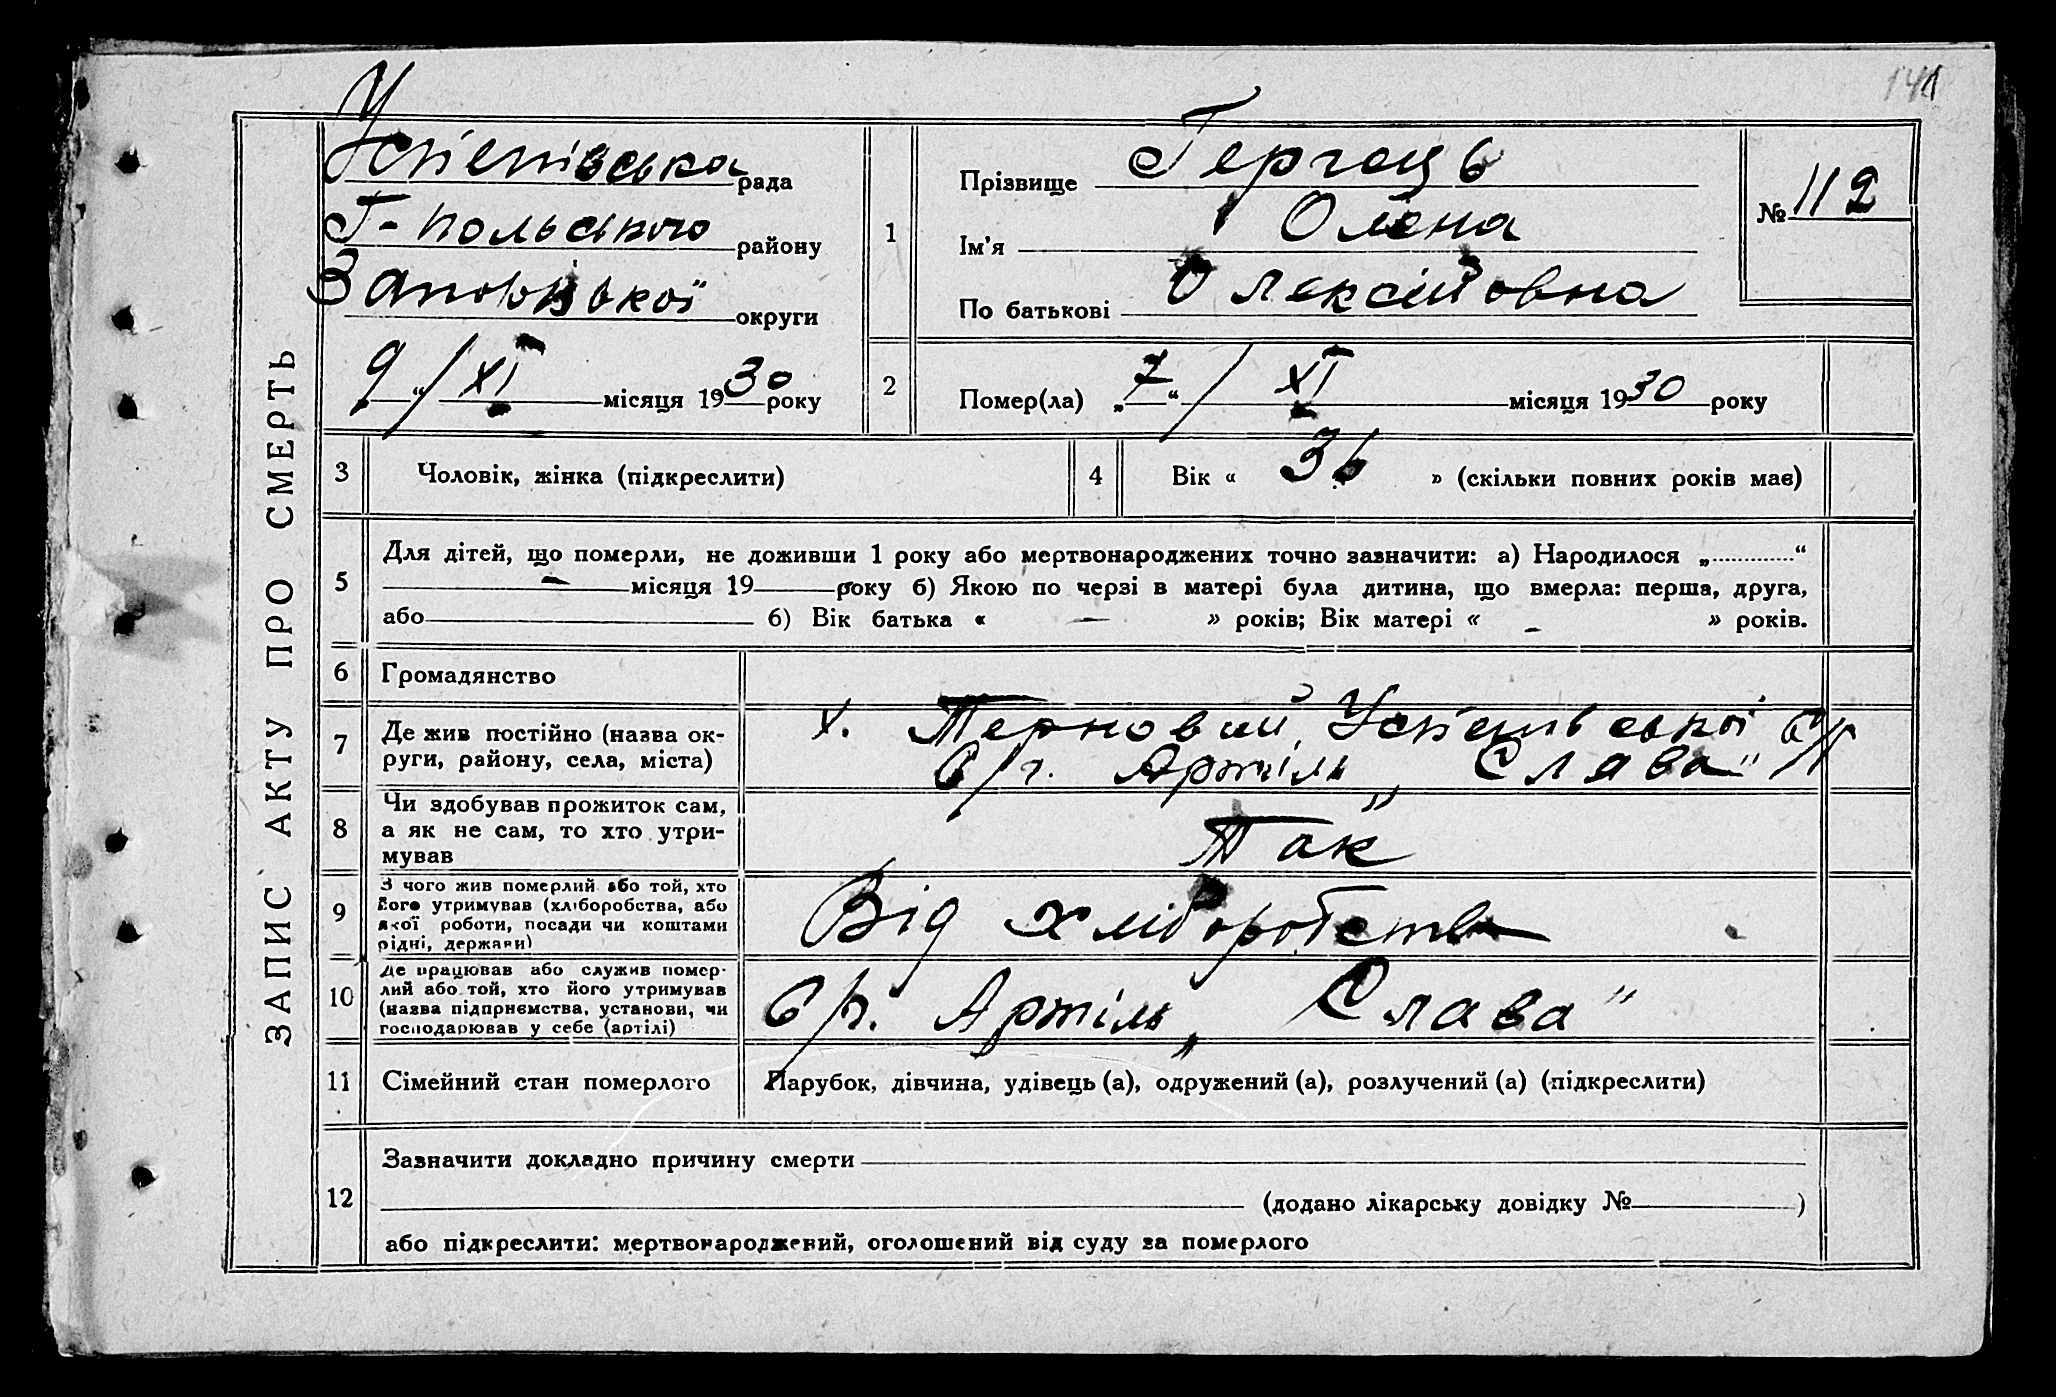 141
ЗАПИС АКТУ ПРО СМЕРТЬ
Успенівська рада
Г-Польського району
Запорізької округи
„9“ / XI місяця 1930 року
1
Прізвище Гергець
Ім'я Олена
По батькові Олексіївна
№ 112
2
Помер(ла) „7“ / XI місяця 1930 року
3 Чоловік, жінка (підкреслити)
4 Вік « 36 » (скільки повних років має)
5
Для дітей, що померли, не доживши 1 року або мертвонароджених точно зазначити: а) Народилося „............“
— місяця 19 року б) Якою по черзі в матері була дитина, що вмерла: перша, друга,
або б) Вік батька « — » років; Вік матері « – » років.
6 Громадянство
7 Де жив постійно (назва ок-
руги, району, села, міста)
х. Терновий, Успенівської с/р
с/г. Артіль „Слава“
8 Чи здобував прожиток сам,
а як не сам, то хто утри-
мував
Так
9 З чого жив померлий або той, хто
його утримував (хліборобства, або
якої роботи, посади чи коштами
рідні, держави)
Від хліборобства
10 Де працював або служив помер-
лий або той, хто його утримував
(назва підприємства, установи, чи
господарював у себе (артілі)
с/г. Артіль „Слава“
11 Сімейний стан померлого
Парубок, дівчина, удівець (а), одружений (а), розлучений (а) (підкреслити)
12
Зазначити докладно причину смерти
(додано лікарську довідку № )
або підкреслити: мертвонароджений, оголошений від суду за померлого